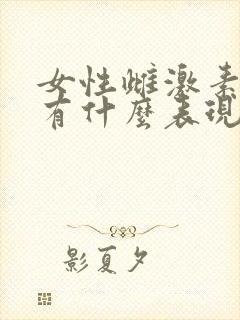 女性雌激素
有什麼表現
影夏夕